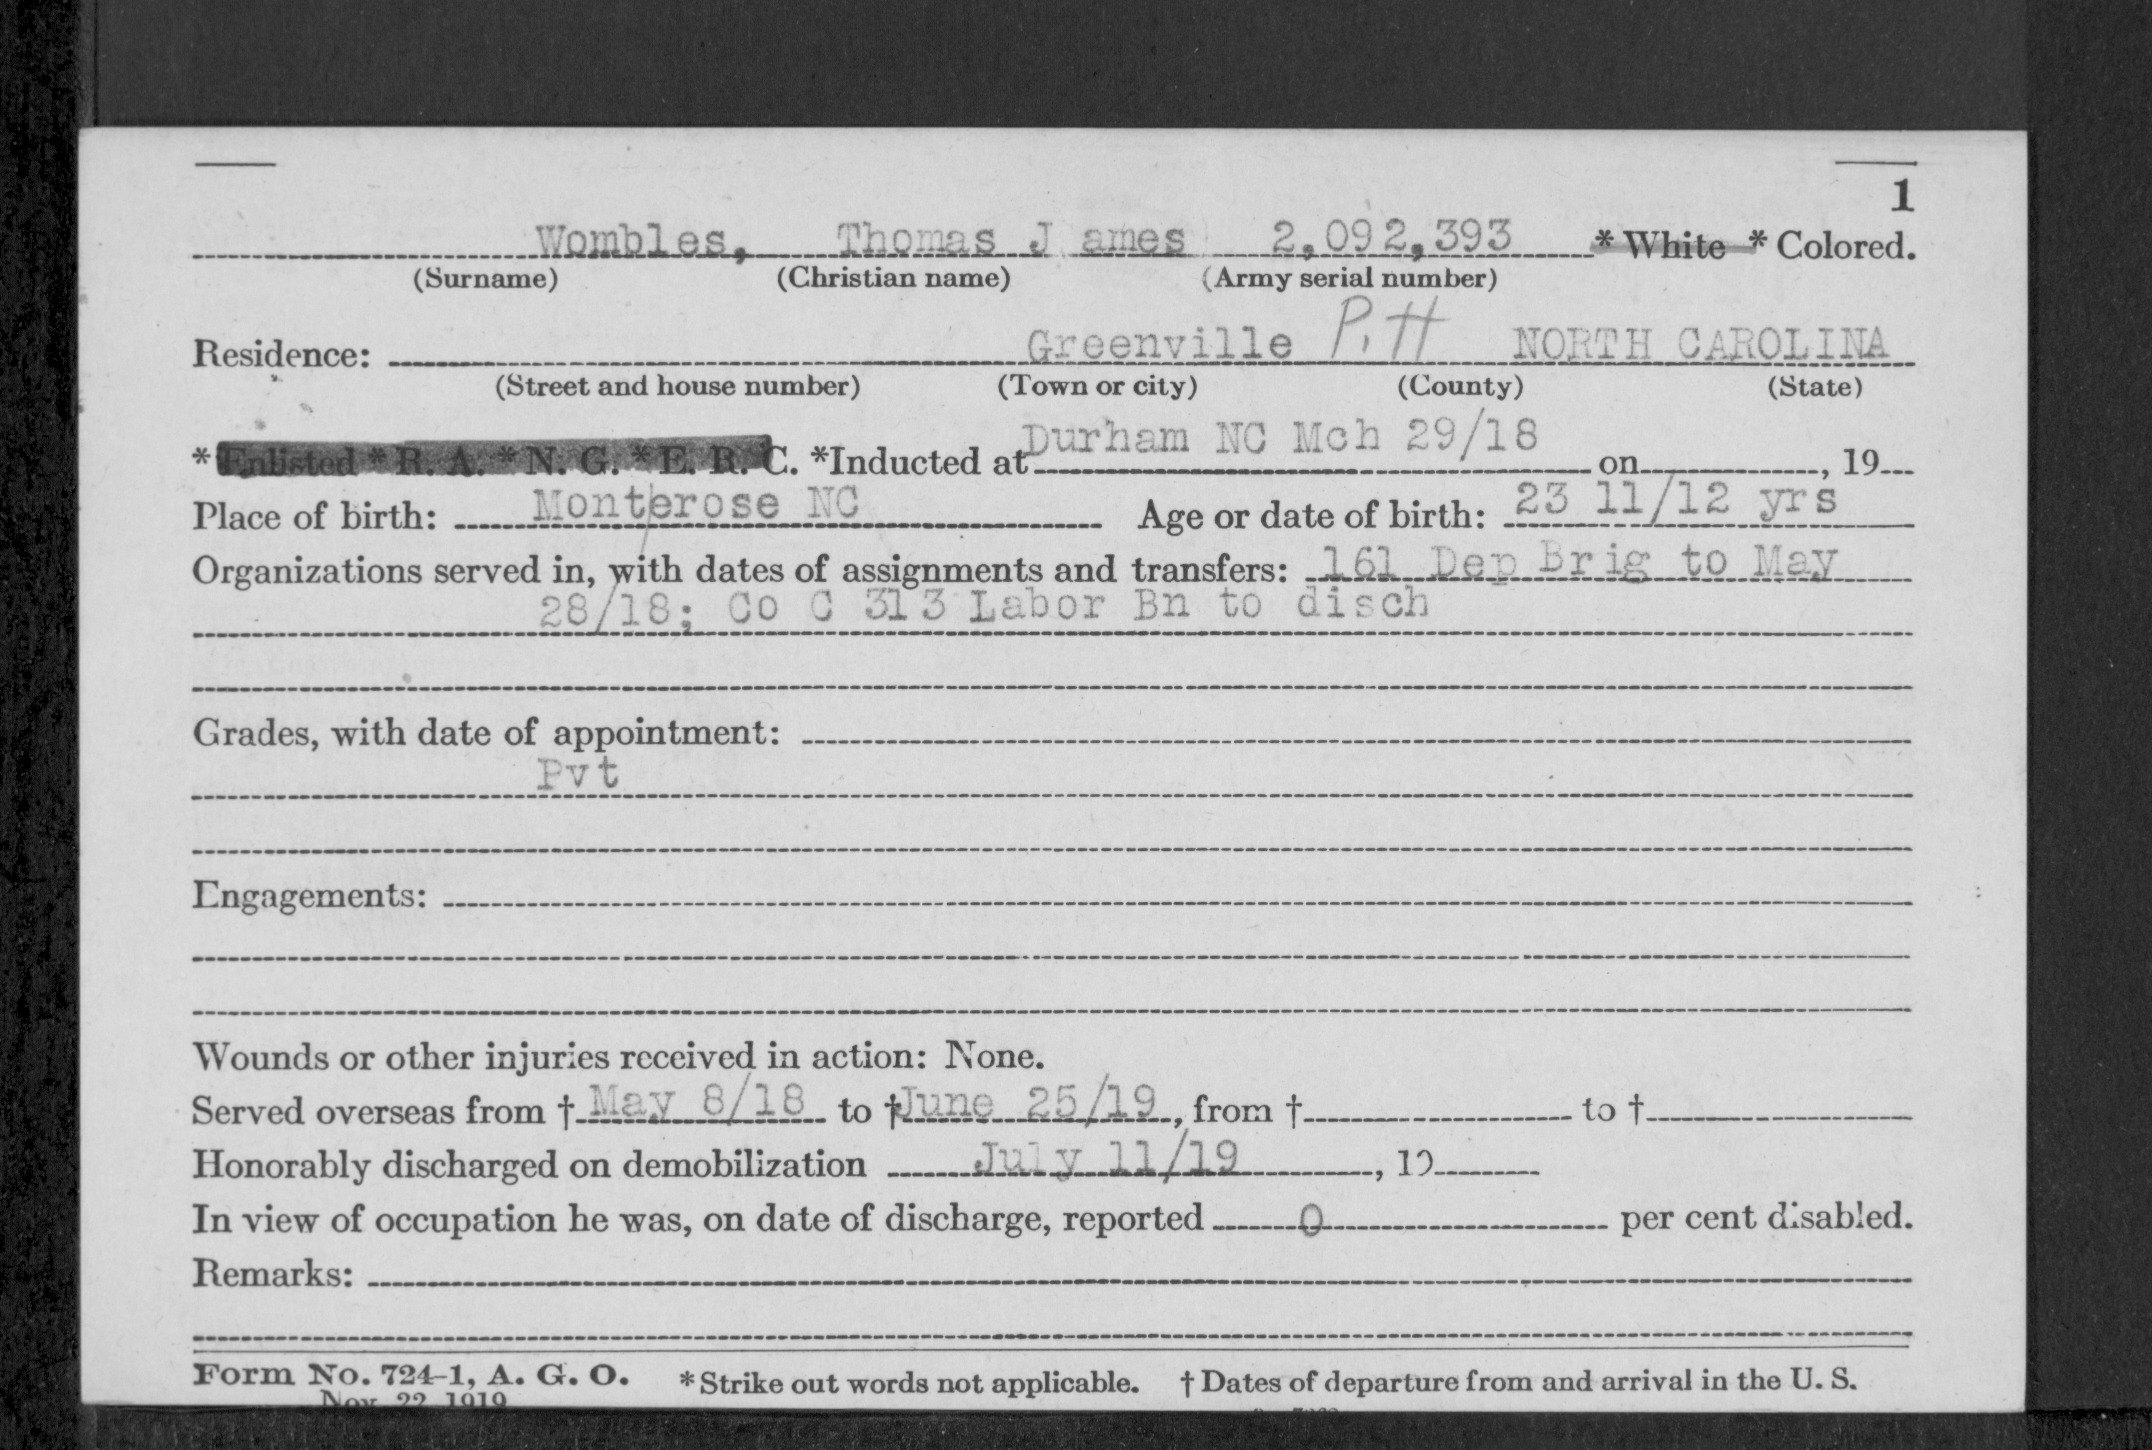 1
Wombles, Thomas J ames 2,092,393 * White * Colored.
(Surname) (Christian name) (Army serial number)
Residence: Greenville Pitt NORTH CAROLINA
(Street and house number) (Town or city) (County) (State)
* Enlisted * R. A. * N. G. * E. R. C. *Inducted at Durham NC Mch 29/18 on , 19
Place of birth: Monterose NC Age or date of birth: 23 11/12 yrs
Organizations served in, with dates of assignments and transfers: 161 Dep Brig to May
28/18; Co C 313 Labor Bn to disch
Grades, with date of appointment:
Pvt
Engagements:
Wounds or other injuries received in action: None.
Served overseas from † May 8/18 to † June 25/19, from † to †
Honorably discharged on demobilization July 11/19, 19
In view of occupation he was, on date of discharge, reported 0 per cent disabled.
Remarks:
Form No. 724-1, A. G. O. * Strike out words not applicable. † Dates of departure from and arrival in the U. S.
Nov. 22 1919